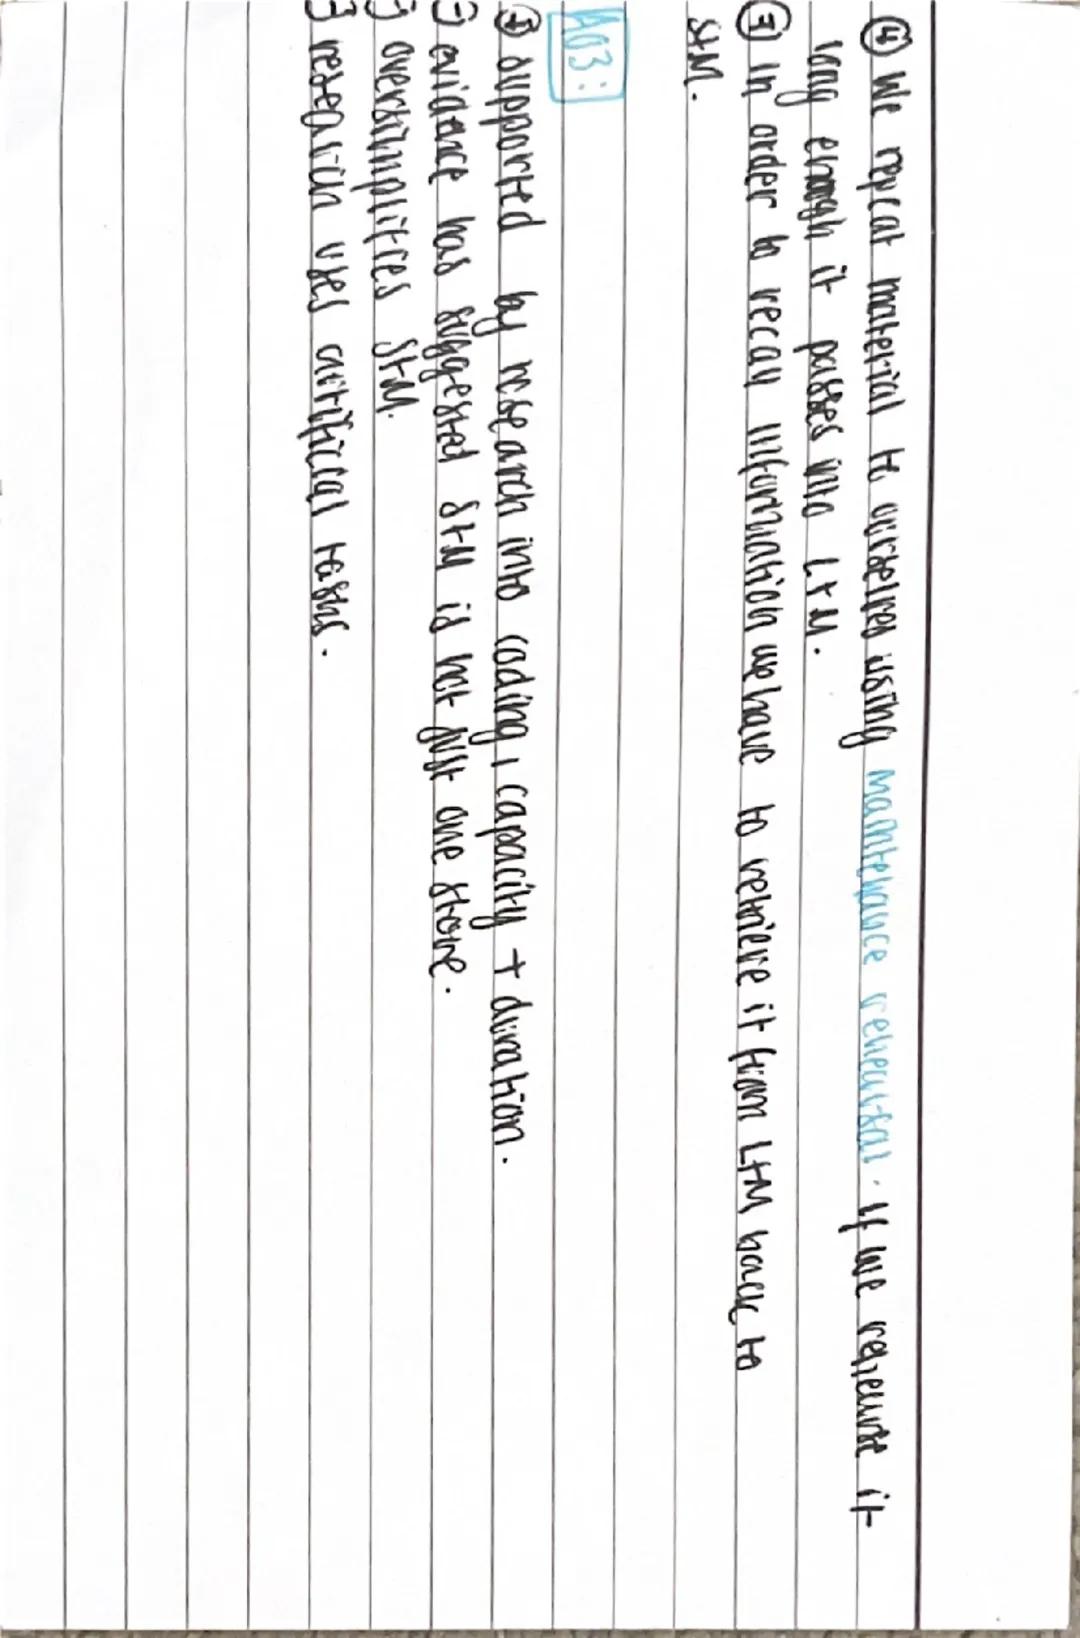 ④ We repeat material to ourselves using maintenance rehearsal. If we rehearse it
long enough it passes into LTM.
in order to recall information we have to retrieve it from LTM back to
STM.
A03:
supported by research into coding, capacity + duration.
evidence has suggested STM is not just one store.
oversimplifies STM.
research uses artificial tasks.